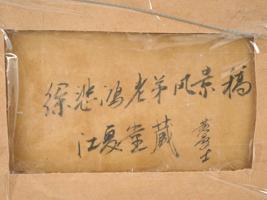 徐悲鸿老弟风景稿
江夏堂藏